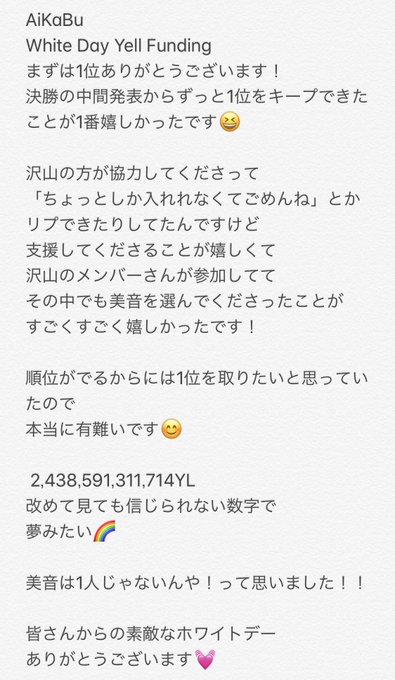 AiKaBu
White Day Yell Funding
まずは1位ありがとうございます！
決勝の中間発表からずっと1位をキープできた
ことが1番嬉しかったです😆
沢山の方が協力してくださって
「ちょっとしか入れれなくてごめんね」とか
リプできたりしてたんですけど
支援してくださることが嬉しくて
沢山のメンバーさんが参加してて
その中でも美音を選んでくださったことが
すごくすごく嬉しかったです！
順位がでるからには1位を取りたいと思ってい
たので
本当に有難いです😊
2,438,591,311,714YL
改めて見ても信じられない数字で
夢みたい🌈
美音は1人じゃないんや！って思いました！！
皆さんからの素敵なホワイトデー
ありがとうございます💓